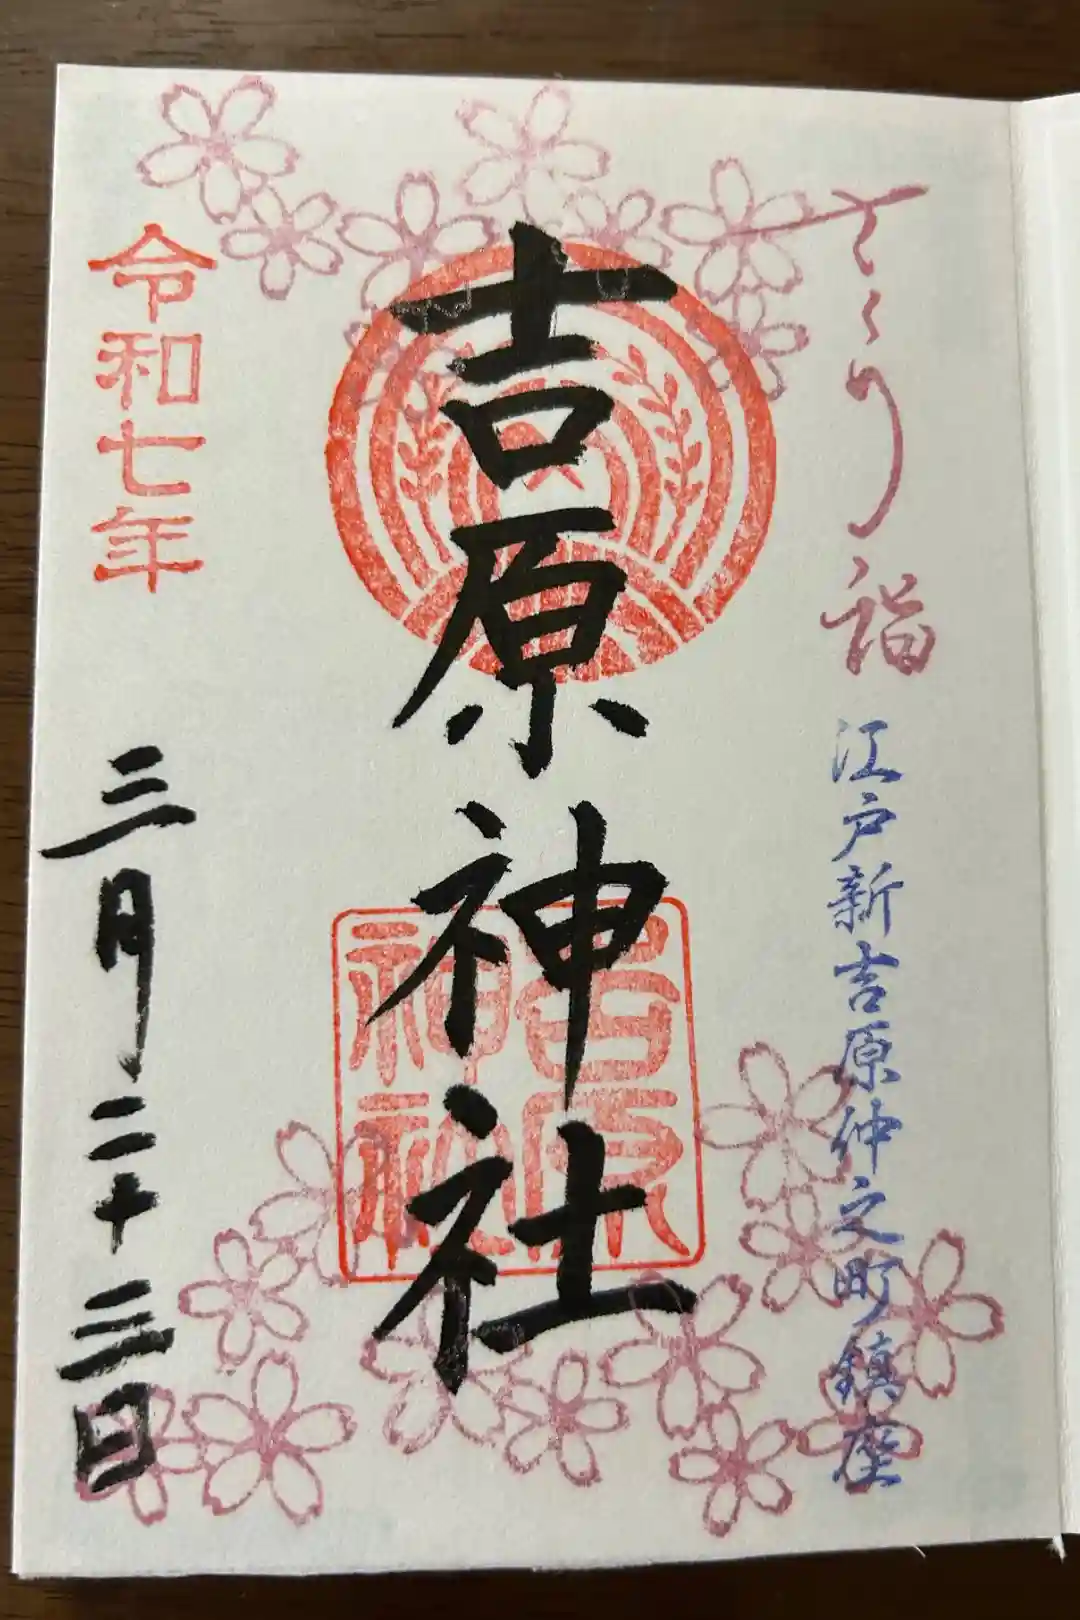 さくり詣
江戸新吉原仲之町鎮座
吉原神社
吉原
神社
令和七年
三月二十三日